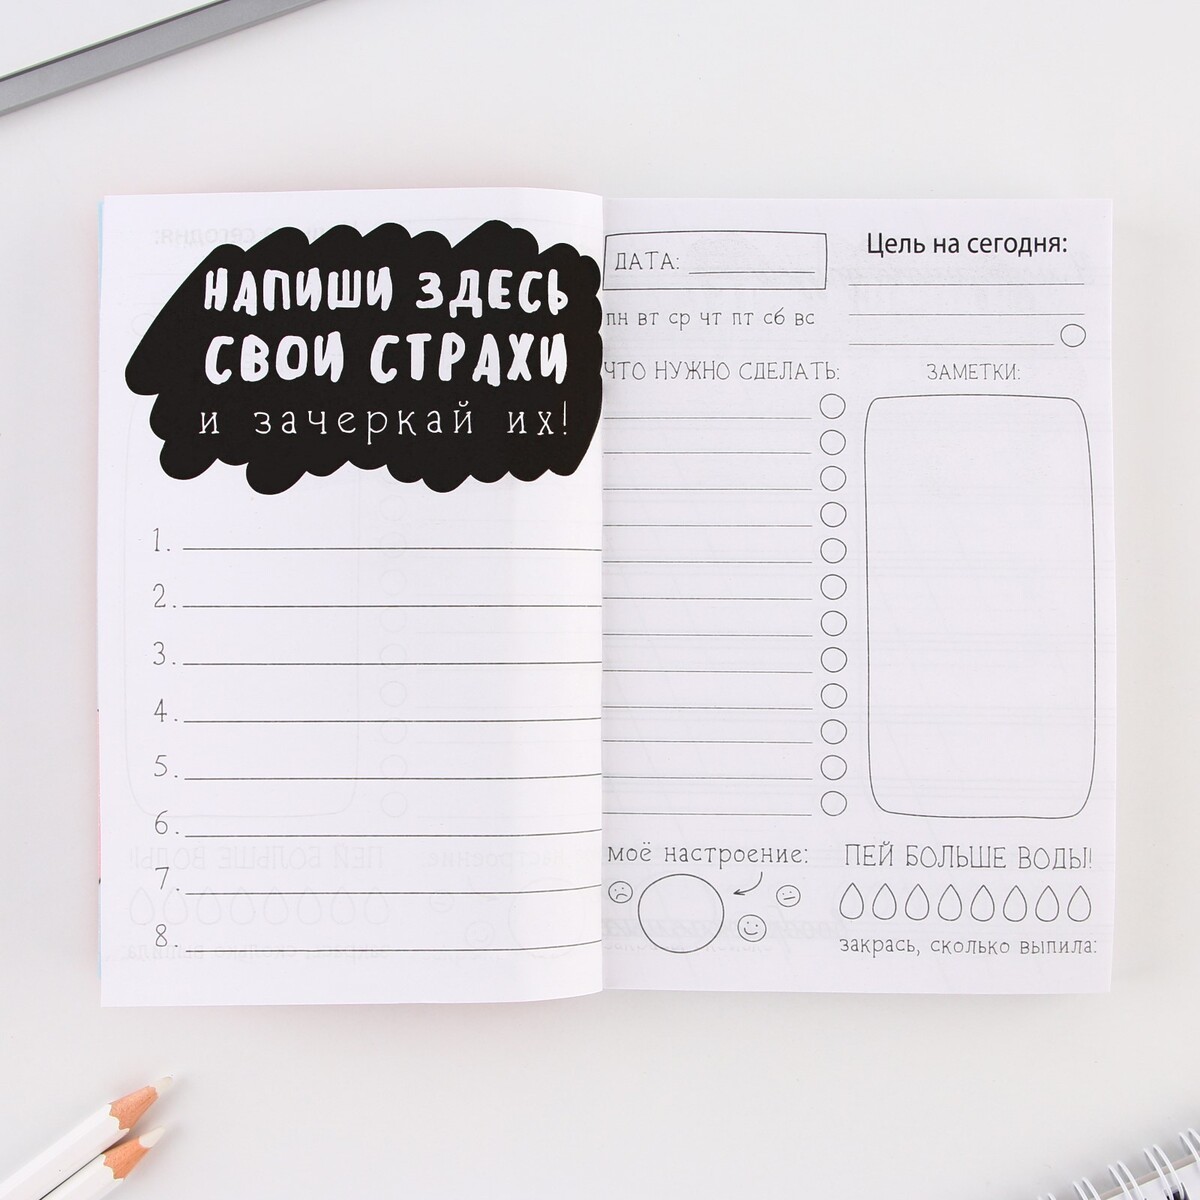 НАПИШИ ЗДЕСЬ
СВОИ СТРАХИ
и зачеркай их!
1.
2.
3.
4.
5.
6.
7.
8.
ДАТА:
пн вт ср чт пт сб вс
ЧТО НУЖНО СДЕЛАТЬ:
моё настроение:
Цель на сегодня:
ЗАМЕТКИ:
ПЕЙ БОЛЬШЕ ВОДЫ!
закрась, сколько выпила: